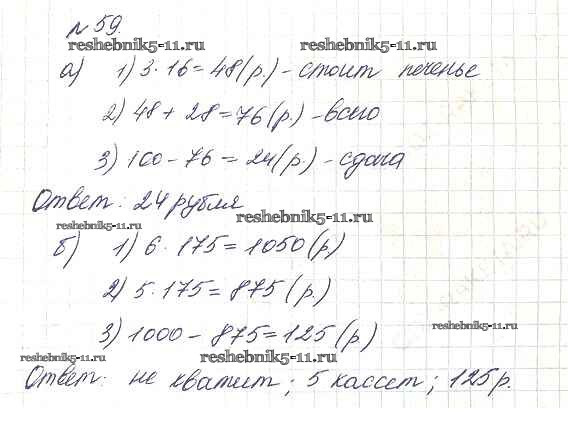 № 59.
reshebnik5-11.ru reshebnik5-11.ru
а) 1) 3·16=48(р.) - стоит печенье
2) 48+28=76(р.) - всего
3) 100-76=24(р.) - сдача
Ответ: 24 рубля
reshebnik5-11.ru
reshebnik5-11.ru
б) 1) 6·175=1050(р)
2) 5·175=875(р.)
3) 1000-875=125(р)
reshebnik5-11.ru
reshebnik5-11.ru reshebnik5-11.ru
Ответ: не хватит; 5 кассет; 125р.